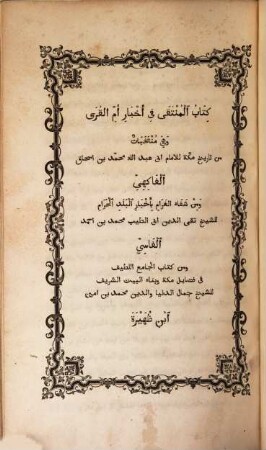 كتاب المنتقى في أخبار أم القرى
وفي منتخبات
من تاريخ مكة للامام ابى عبد الله محمد بن اسحاق
الفاكهيّ
ومن شفاء الغرام بأخبار البلد الحرام
للشيخ تقى الدين ابى الطيب محمد بن احمد
الفاسيّ
ومن كتاب الجامع اللطيف
فى فضايل مكة وبناء البيت الشريف
للشيخ جمال الدنيا والدين محمد بن امين
ابن ظهيرة